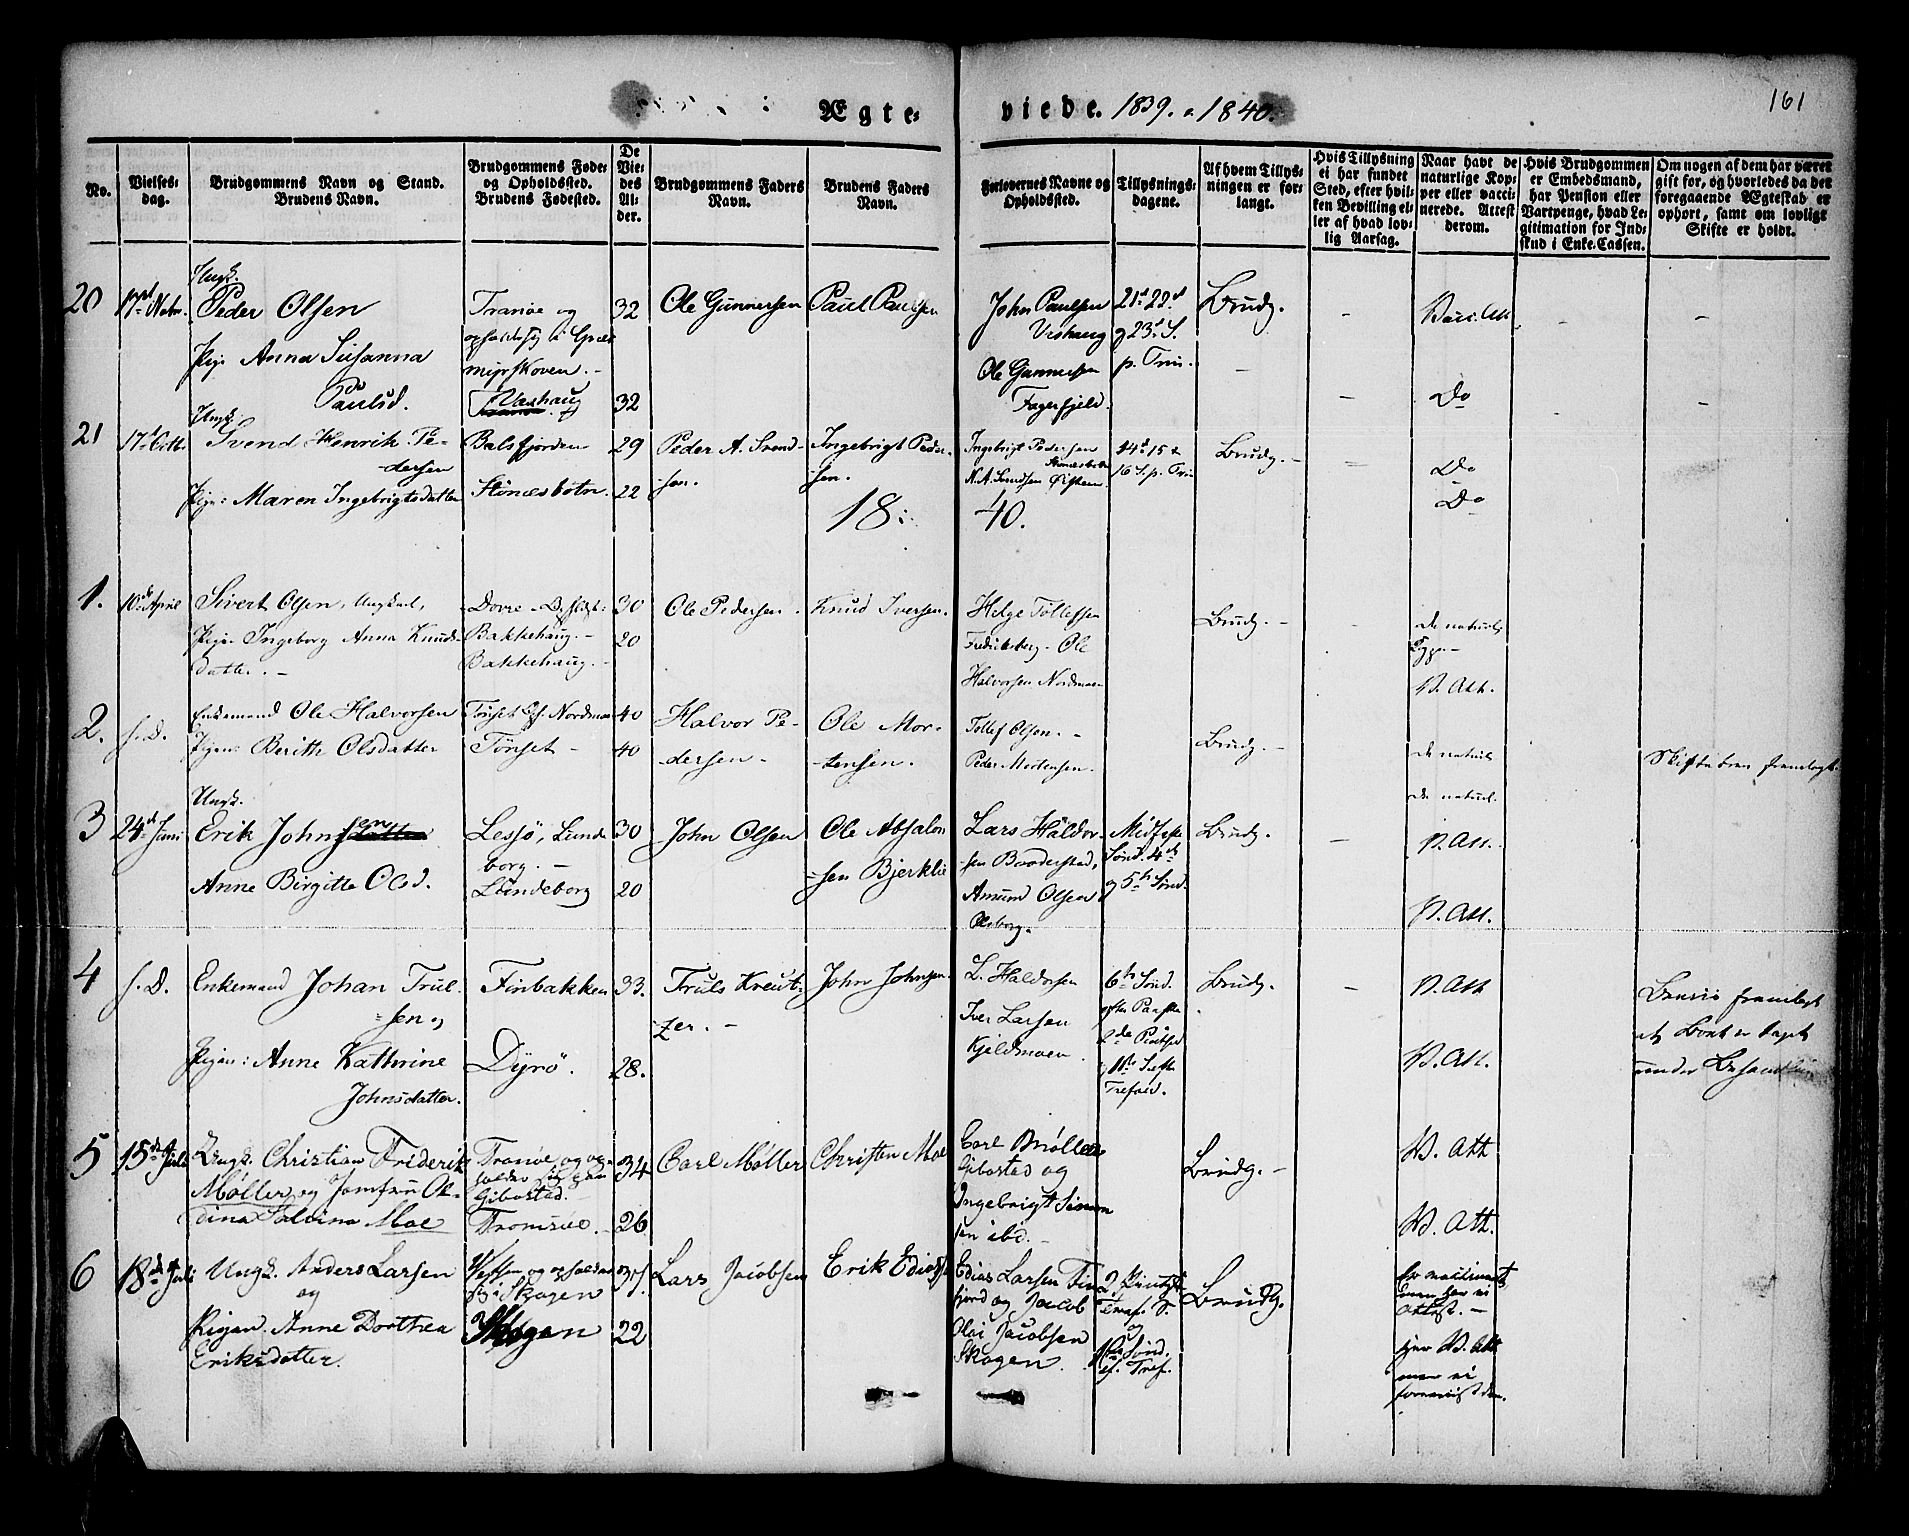 Ægte-
viede. 1839. & 1840.
161
No.
Vielses-
dag.
Brudgommens Navn og Stand.
Brudens Navn.
Brudgommens Føde-
og Opholdssted.
Brudens Fødested.
De
Vie-
des
Al-
der.
Brudgommens Faders
Navn.
Brudens Faders
Navn.
Forlovernes Navne og
Opholdssted.
Tillysnings-
dagene.
Af hvem Tillys-
ningen er for-
langt.
Hvis Tillysning
ei har fundet
Sted, efter hvil-
ken Bevilling el-
ler af hvad lov-
lig Aarsag.
Naar havt de
naturlige Kop-
per eller vacci-
nerede. Attest
derom.
Hvis Brudgommen
er Embedsmand,
har Pension eller
Vartpenge, hvad Le-
gitimation for Ind-
skud i Enke-Cassen.
Om nogen af dem har været
gift før, og hvorledes da det
foregaaende Ægteskab er
ophørt, samt om lovligt
Skifte er holdt.
20
17de Nobr.
Ungk.
Peder Olsen
Pige Anna Susanna
Paulsd.
Tranøe og
opholdsig i
myrskoven.
32
32
Ole Gunnersen
Paul Paulsen
John Paulsen
Ole Gunnersen
Fagerfjeld.
21de 22de
og 23de S.
p. Trin.
Brudg.
Vacc. Att.
Do
21
17de Octb.
Ungk.
Svend Henrik Pe-
dersen
Pige: Maren Ingebrigtsdatter
Balsfjorden
Stønæsbotn.
29
22
Peder A. Svend-
sen.
Ingebrigt Peder-
sen.
Ingebrigt Pedersen
14de 15 &
16 S. p. Trin.
Brudg.
Do
Do
18: 40.
1.
10de April
Sivert Olsen, Ungkarl,
Pige Ingeborg Anna Knuds-
datter.
Dovre
Bakkehaug.
Bakkehaug.
30
20
Ole Pedersen.
Knud Iversen.
Helge Tollefsen
Fredriksberg. Ole
Halvorsen Nordmoen
Brudg.
De naturl.
V. Att.
2.
s. D.
Enkemand Ole Halvorsen
Pigen: Berith Olsdatter
Tønset Nordmoen
Tønset
40
40
Halvor Pe-
dersen.
Ole Mor-
tensen.
Tollef Olsen.
Peder Mortensen.
Brudg.
De naturl.
De naturl.
3
24de Juni
Ungk.
Erik Johnsen
Anne Birgitte Olsd.
Lesjö, Lunde
borg.
Lundeborg
30
20
John Olsen
Ole Absalon
sen Bjerklie
Lars Haldor-
sen
Amund Olsen
Olsborg.
Midfaste
Sønd. 4de
og 5te Sønd.
Brudg.
V. Att.
V. Att.
4
s. D.
Enkemand Johan Trul-
sen og
Pigen: Anne Kathrine
Johnsdatter.
Finbakken
Dyrö.
33.
28.
Truls Kreut-
zer.
John Johnsen.
L. Haldorsen
Iver Larsen
Kjeldmoen.
6te Sønd.
efter Paaske
2de Pintsed
Trefold.
Brudg.
V. Att
V. Att.
fremlagt
at Boet er taget
under
5
15de Juli
Ungk. Christian Friderik
Møller og Jomfru Ol-
dina Salvina Moe
Tranøe og op-
holder sig paa
Gibostad.
Tromsøe.
34
26
Carl Møller
Christen Moe
Carl Møller
Gibostad og
Ingebrigt Simon
sen ibd.
Brudg.
V. Att
V. Att.
6
18de Juli
Ungk. Anders Larsen
og
Pigen. Anne Dorthea
Eriksdatter.
Vefsen og opholder
sig i Skogen
Skogen
22
Lars Jacobsen
Erik Edias
Edias Larsen Fin
fjord og Jacob
Olai Jacobsen
Skogen.
2 Pintsd.
og
Sønd.
ef. Tref.
Brudg.
Er vaccineret
men har ei
Attest.
V. Att
men ei